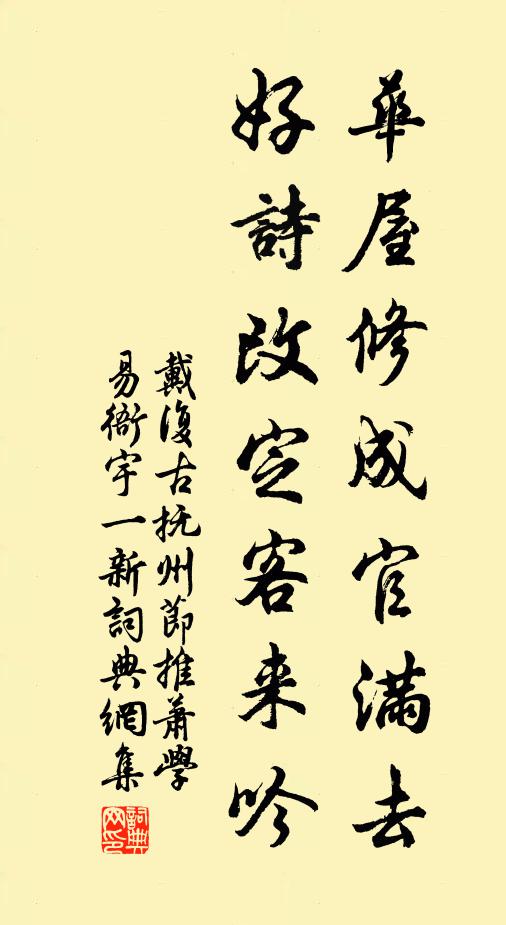 華屋修成官滿去
好詩改定客来吟
戴復古抚州節推蕭學
易衙宇一新詞典網集
詞典網印